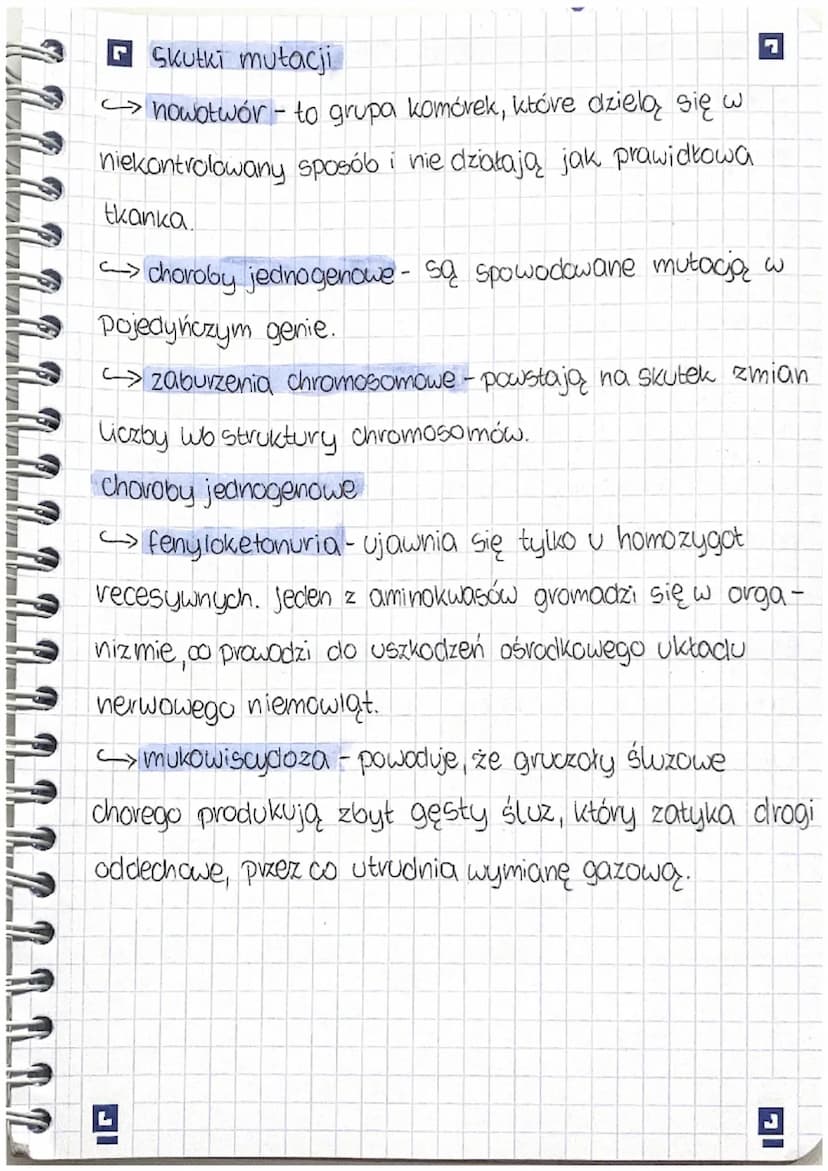 Skutki mutacji
↪ nowotwór - to grupa komórek, które dzielą się w
niekontrolowany sposób i nie działają jak prawidłowa
tkanka.
↪ choroby jednogenowe - są spowodowane mutacją w
pojedyńczym genie.
↪ zaburzenia chromosomowe - powstają na skutek zmian
liczby lub struktury chromosomów.
choroby jednogenowe
↪ fenyloketonuria - ujawnia się tylko u homozygot
recesywnych. Jeden z aminokwasów gromadzi się w orga-
nizmie, co prowadzi do uszkodzeń ośrodkowego układu
nerwowego niemowląt.
↪ mukowiscydoza - powoduje, że gruczoły śluzowe
chorego produkują zbyt gęsty śluz, który zatyka drogi
oddechowe, przez co utrudnia wymianę gazową.